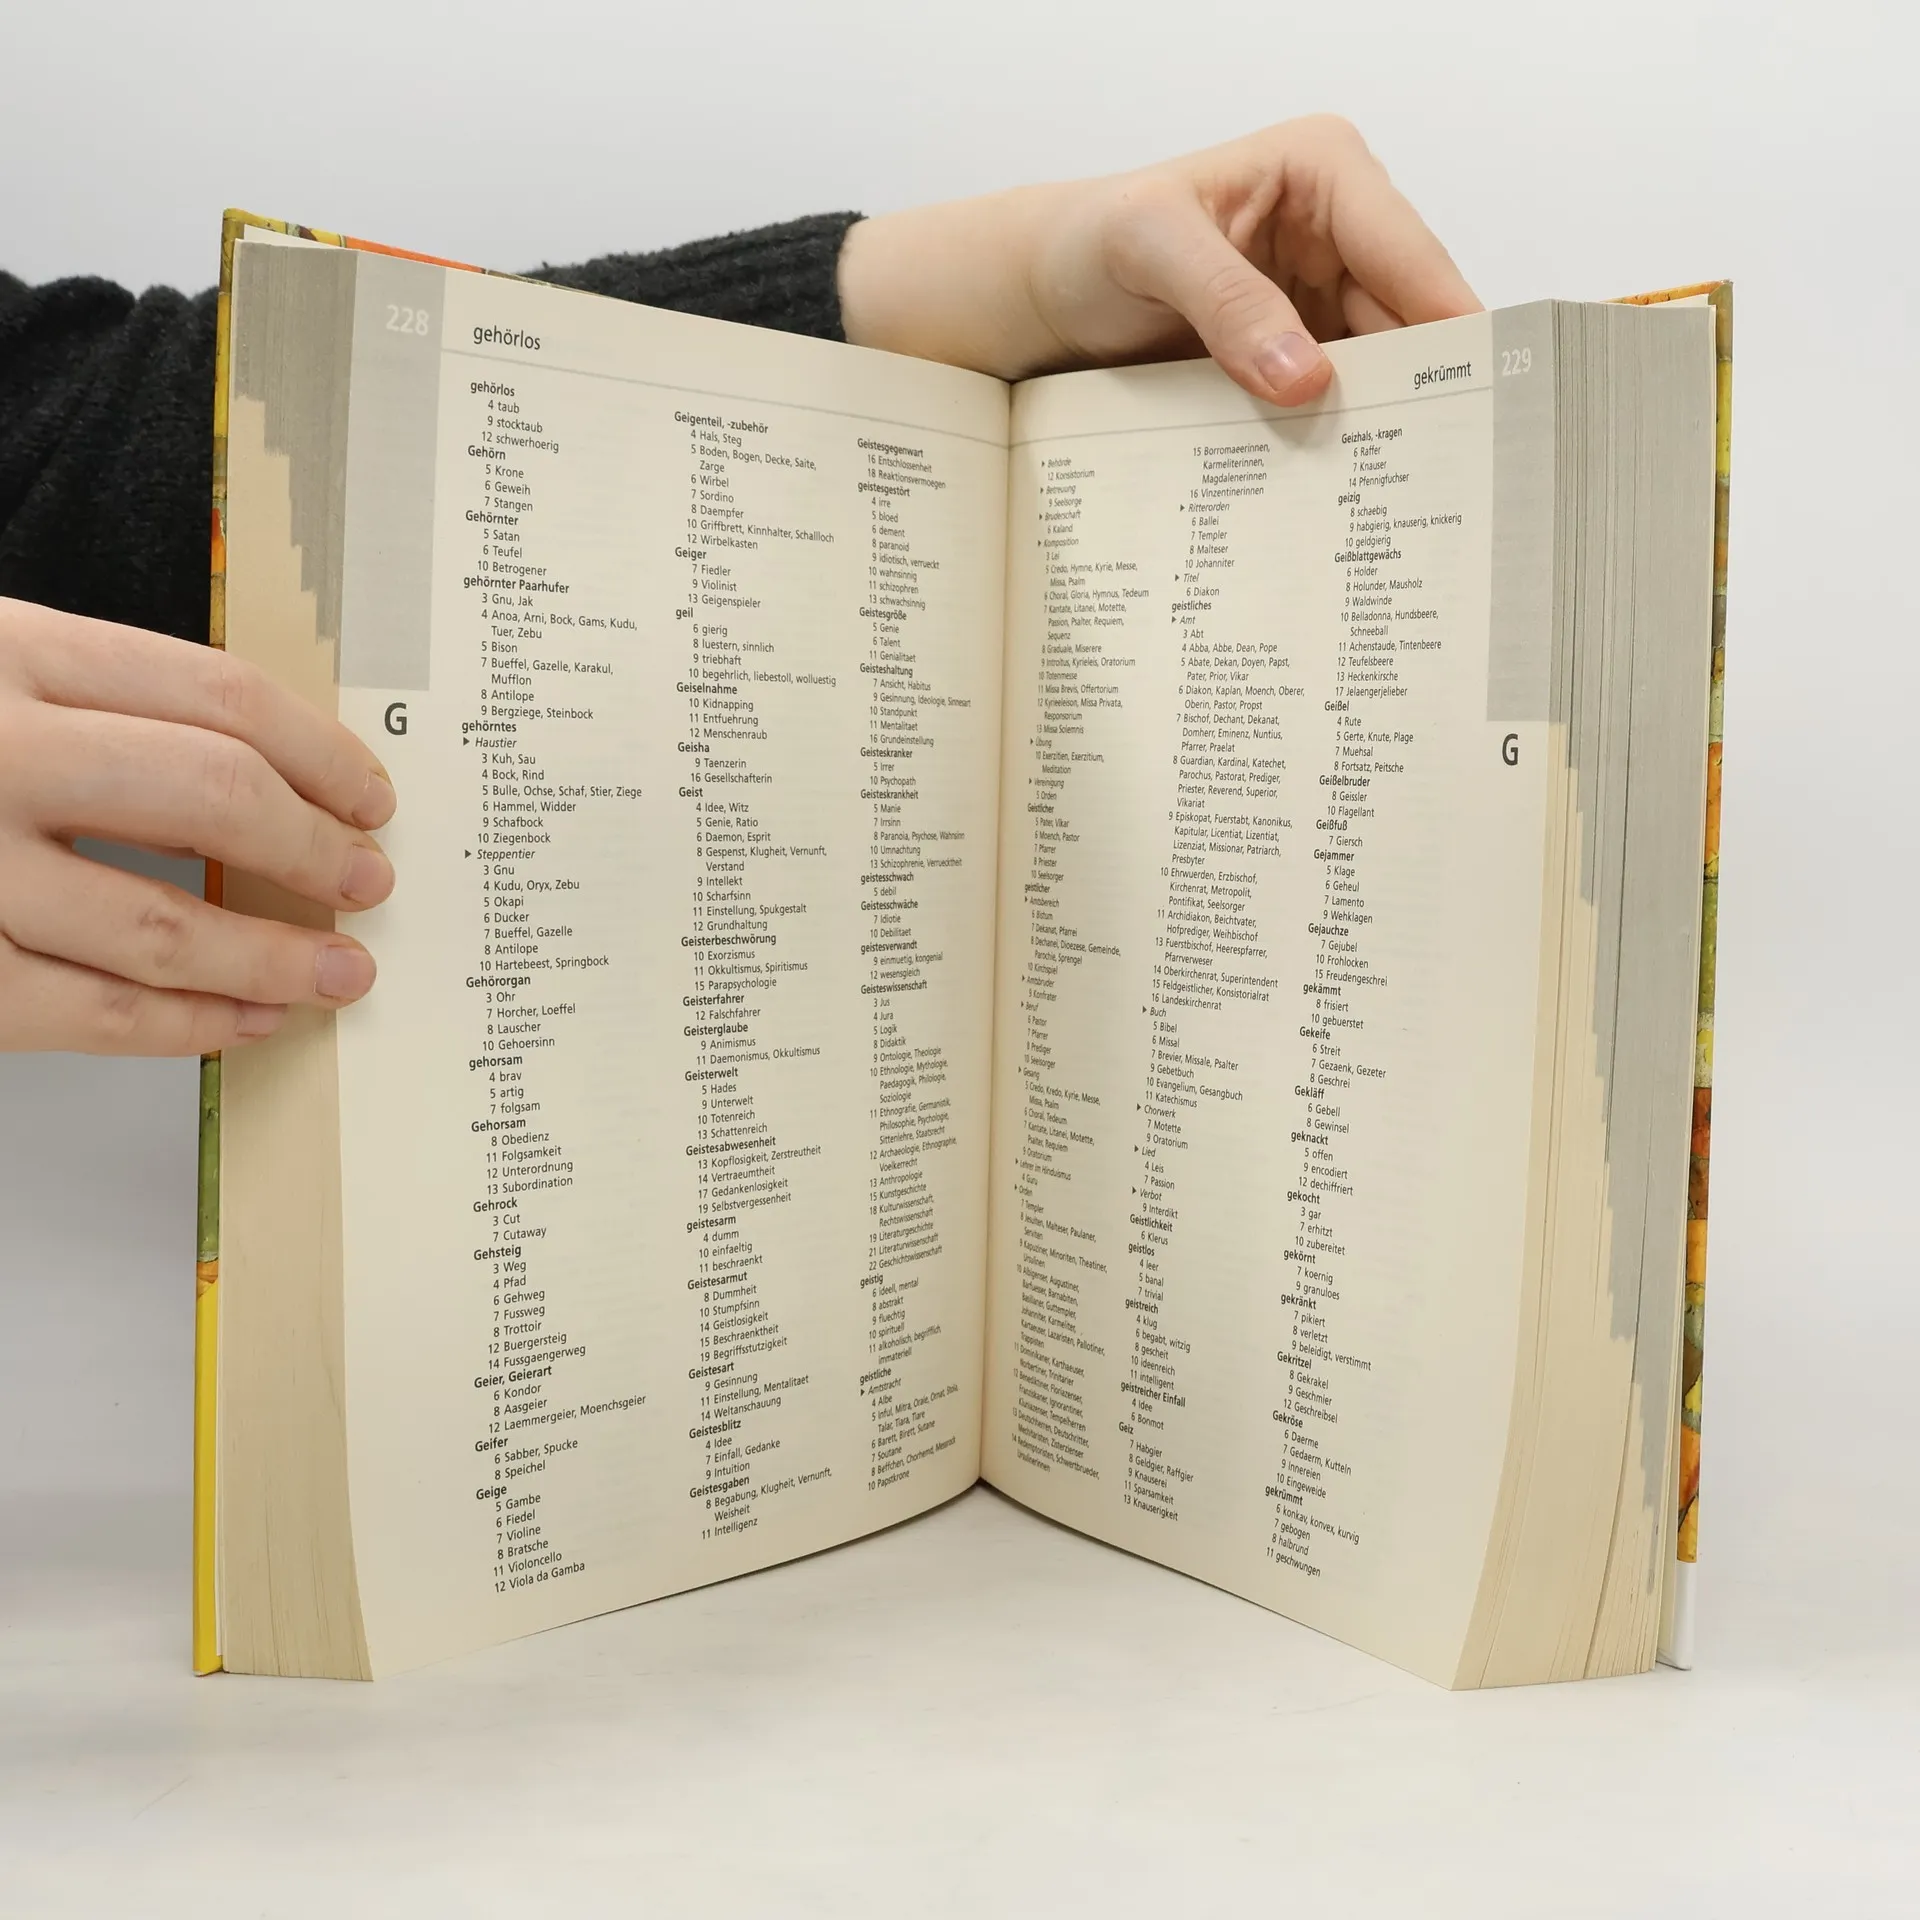 228
gehörlos
gehörlos
4 taub
9 stocktaub
12 schwerhoerig
Gehörn
5 Krone
6 Geweih
7 Stangen
Gehörnter
5 Satan
6 Teufel
10 Betrogener
gehörnter Paarhufer
3 Gnu, Jak
4 Anoa, Arni, Bock, Gams, Kudu,
Tuer, Zebu
5 Bison
7 Bueffel, Gazelle, Karakul,
Mufflon
8 Antilope
9 Bergziege, Steinbock
gehörntes
▶ Haustier
3 Kuh, Sau
4 Bock, Rind
5 Bulle, Ochse, Schaf, Stier, Ziege
6 Hammel, Widder
9 Schafbock
10 Ziegenbock
▶ Steppentier
3 Gnu
4 Kudu, Oryx, Zebu
5 Okapi
6 Ducker
7 Bueffel, Gazelle
8 Antilope
10 Hartebeest, Springbock
Gehörorgan
3 Ohr
7 Horcher, Loeffel
8 Lauscher
10 Gehoersinn
gehorsam
4 brav
5 artig
7 folgsam
Gehorsam
8 Obedienz
11 Folgsamkeit
12 Unterordnung
13 Subordination
Gehrock
3 Cut
7 Cutaway
Gehsteig
3 Weg
4 Pfad
6 Gehweg
7 Fussweg
8 Trottoir
12 Buergersteig
14 Fussgaengerweg
Geier, Geierart
6 Kondor
8 Aasgeier
12 Laemmergeier, Moenchsgeier
Geifer
6 Sabber, Spucke
8 Speichel
Geige
5 Gambe
6 Fiedel
7 Violine
8 Bratsche
11 Violoncello
12 Viola da Gamba
Geigenteil, -zubehör
4 Hals, Steg
5 Boden, Bogen, Decke, Saite,
Zarge
6 Wirbel
7 Sordino
8 Daempfer
10 Griffbrett, Kinnhalter, Schallloch
12 Wirbelkasten
Geiger
7 Fiedler
9 Violinist
13 Geigenspieler
geil
6 gierig
8 luestern, sinnlich
9 triebhaft
10 begehrlich, liebestoll, wolluestig
Geiselnahme
10 Kidnapping
11 Entfuehrung
12 Menschenraub
Geisha
9 Taenzerin
16 Gesellschafterin
Geist
4 Idee, Witz
5 Genie, Ratio
6 Daemon, Esprit
8 Gespenst, Klugheit, Vernunft,
Verstand
9 Intellekt
10 Scharfsinn
11 Einstellung, Spukgestalt
12 Grundhaltung
Geisterbeschwörung
10 Exorzismus
11 Okkultismus, Spiritismus
15 Parapsychologie
Geisterfahrer
12 Falschfahrer
Geisterglaube
9 Animismus
11 Daemonismus, Okkultismus
Geisterwelt
5 Hades
9 Unterwelt
10 Totenreich
13 Schattenreich
Geistesabwesenheit
13 Kopflosigkeit, Zerstreutheit
14 Vertraeumtheit
17 Gedankenlosigkeit
19 Selbstvergessenheit
geistesarm
4 dumm
10 einfaeltig
11 beschraenkt
Geistesarmut
8 Dummheit
10 Stumpfsinn
14 Geistlosigkeit
15 Beschraenktheit
19 Begriffsstutzigkeit
Geistesart
9 Gesinnung
11 Einstellung, Mentalitaet
14 Weltanschauung
Geistesblitz
4 Idee
7 Einfall, Gedanke
9 Intuition
Geistesgaben
8 Begabung, Klugheit, Vernunft,
Weisheit
11 Intelligenz
Geistesgegenwart
16 Entschlossenheit
18 Reaktionsvermoegen
geistesgestört
4 irre
5 bloed
6 dement
8 paranoid
9 idiotisch, verrueckt
10 wahnsinnig
11 schizophren
13 schwachsinnig
Geistesgröße
5 Genie
6 Talent
11 Genialitaet
Geisteshaltung
7 Ansicht, Habitus
9 Gesinnung, Ideologie, Sinnesart
10 Standpunkt
11 Mentalitaet
16 Grundeinstellung
Geisteskranker
5 Irrer
10 Psychopath
Geisteskrankheit
5 Manie
7 Irrsinn
8 Paranoia, Psychose, Wahnsinn
10 Umnachtung
13 Schizophrenie, Verruecktheit
geistesschwach
5 debil
Geistesschwäche
7 Idiotie
10 Debilitaet
geistesverwandt
9 einmuetig, kongenial
12 wesensgleich
Geisteswissenschaft
3 Jus
4 Jura
5 Logik
8 Didaktik
9 Ontologie, Theologie
10 Ethnologie, Mythologie,
Paedagogik, Philologie,
Soziologie
11 Ethnografie, Germanistik,
Philosophie, Psychologie,
Sittenlehre, Staatsrecht
12 Archaeologie, Ethnographie,
Voelkerrecht
13 Anthropologie
15 Kunstgeschichte
18 Kulturwissenschaft,
Rechtswissenschaft
19 Literaturgeschichte
21 Literaturwissenschaft
22 Geschichtswissenschaft
geistig
6 ideell, mental
8 abstrakt
9 fluechtig
10 spirituell
11 alkoholisch, begrifflich
immateriell
geistliche
▶ Amtstracht
4 Albe
5 Inful, Mitra, Orale, Ornat, Stola,
Talar, Tiara, Tiare
6 Barett, Birett, Sutane
7 Soutane
8 Beffchen, Chorhemd, Messrock
10 Papstkrone
G
gekrümmt
229
▶ Behörde
12 Konsistorium
▶ Betreuung
9 Seelsorge
▶ Bruderschaft
6 Kaland
▶ Komposition
3 Lei
5 Credo, Hymne, Kyrie, Messe,
Missa, Psalm
6 Choral, Gloria, Hymnus, Tedeum
7 Kantate, Litanei, Motette,
Passion, Psalter, Requiem,
Sequenz
8 Graduale, Miserere
9 Introitus, Kyrieleis, Oratorium
10 Totenmesse
11 Missa Brevis, Offertorium
12 Kyrieeleison, Missa Privata,
Responsorium
13 Missa Solemnis
▶ Übung
10 Exerzitien, Exerzitium,
Meditation
▶ Vereinigung
5 Orden
Geistlicher
5 Pater, Vikar
6 Moench, Pastor
7 Pfarrer
8 Priester
10 Seelsorger
geistlicher
▶ Amtsbereich
6 Bistum
7 Dekanat, Pfarrei
8 Dechanei, Dioezese, Gemeinde,
Parochie, Sprengel
10 Kirchspiel
▶ Amtsbruder
9 Konfrater
▶ Beruf
6 Pastor
7 Pfarrer
8 Prediger
10 Seelsorger
▶ Gesang
5 Credo, Kredo, Kyrie, Messe,
Missa, Psalm
6 Choral, Tedeum
7 Kantate, Litanei, Motette,
Psalter, Requiem
9 Oratorium
▶ Lehrer im Hinduismus
4 Guru
▶ Orden
7 Templer
8 Jesuiten, Malteser, Paulaner,
Serviten
9 Kapuziner, Minoriten, Theatiner,
Ursulinen
10 Albigenser, Augustiner,
Barfuesser, Barnabiten,
Basilianer, Guttempler,
Johanniter, Karmeliter,
Kartaeuser, Lazaristen, Pallotiner,
Trappisten
11 Dominikaner, Karthaeuser,
Norbertiner, Trinitarier
12 Benediktiner, Floriazenser,
Franziskaner, Ignorantiner,
Kluniazenser, Tempelherren
13 Deutschherren, Deutschritter,
Mechitaristen, Zisterzienser
14 Redemptoristen, Schwertbrueder,
Ursulinerinnen
15 Borromaeerinnen,
Karmeliterinnen,
Magdalenerinnen
16 Vinzentinerinnen
▶ Ritterorden
6 Ballei
7 Templer
8 Malteser
10 Johanniter
▶ Titel
6 Diakon
geistliches
▶ Amt
3 Abt
4 Abba, Abbe, Dean, Pope
5 Abate, Dekan, Doyen, Papst,
Pater, Prior, Vikar
6 Diakon, Kaplan, Moench, Oberer,
Oberin, Pastor, Propst
7 Bischof, Dechant, Dekanat,
Domherr, Eminenz, Nuntius,
Pfarrer, Praelat
8 Guardian, Kardinal, Katechet,
Parochus, Pastorat, Prediger,
Priester, Reverend, Superior,
Vikariat
9 Episkopat, Fuerstabt, Kanonikus,
Kapitular, Licentiat, Lizentiat,
Lizenziat, Missionar, Patriarch,
Presbyter
10 Ehrwuerden, Erzbischof,
Kirchenrat, Metropolit,
Pontifikat, Seelsorger
11 Archidiakon, Beichtvater,
Hofprediger, Weihbischof
13 Fuerstbischof, Heerespfarrer,
Pfarrverweser
14 Oberkirchenrat, Superintendent
15 Feldgeistlicher, Konsistorialrat
16 Landeskirchenrat
▶ Buch
5 Bibel
6 Missal
7 Brevier, Missale, Psalter
9 Gebetbuch
10 Evangelium, Gesangbuch
11 Katechismus
▶ Chorwerk
7 Motette
9 Oratorium
▶ Lied
4 Leis
7 Passion
▶ Verbot
9 Interdikt
Geistlichkeit
6 Klerus
geistlos
4 leer
5 banal
7 trivial
geistreich
4 klug
6 begabt, witzig
8 gescheit
10 ideenreich
11 intelligent
geistreicher Einfall
4 Idee
6 Bonmot
Geiz
7 Habgier
8 Geldgier, Raffgier
9 Knauserei
11 Sparsamkeit
13 Knauserigkeit
Geizhals, -kragen
6 Raffer
7 Knauser
14 Pfennigfuchser
geizig
8 schaebig
9 habgierig, knauserig, knickerig
10 geldgierig
Geißblattgewächs
6 Holder
8 Holunder, Mausholz
9 Waldwinde
10 Belladonna, Hundsbeere,
Schneeball
11 Achenstaude, Tintenbeere
12 Teufelsbeere
13 Heckenkirsche
17 Jelaengerjelieber
Geißel
4 Rute
5 Gerte, Knute, Plage
7 Muehsal
8 Fortsatz, Peitsche
Geißelbruder
8 Geissler
10 Flagellant
Geißfuß
7 Giersch
Gejammer
5 Klage
6 Geheul
7 Lamento
9 Wehklagen
Gejauchze
7 Gejubel
10 Frohlocken
15 Freudengeschrei
gekämmt
8 frisiert
10 gebuerstet
Gekeife
6 Streit
7 Gezaenk, Gezeter
8 Geschrei
Gekläff
6 Gebell
8 Gewinsel
geknackt
5 offen
9 encodiert
12 dechiffriert
gekocht
3 gar
7 erhitzt
10 zubereitet
gekörnt
7 koernig
9 granuloes
gekränkt
7 pikiert
8 verletzt
9 beleidigt, verstimmt
Gekritzel
8 Gekrakel
9 Geschmier
12 Geschreibsel
Gekröse
6 Daerme
7 Gedaerm, Kutteln
9 Innereien
10 Eingeweide
gekrümmt
6 konkav, konvex, kurvig
7 gebogen
8 halbrund
11 geschwungen
G